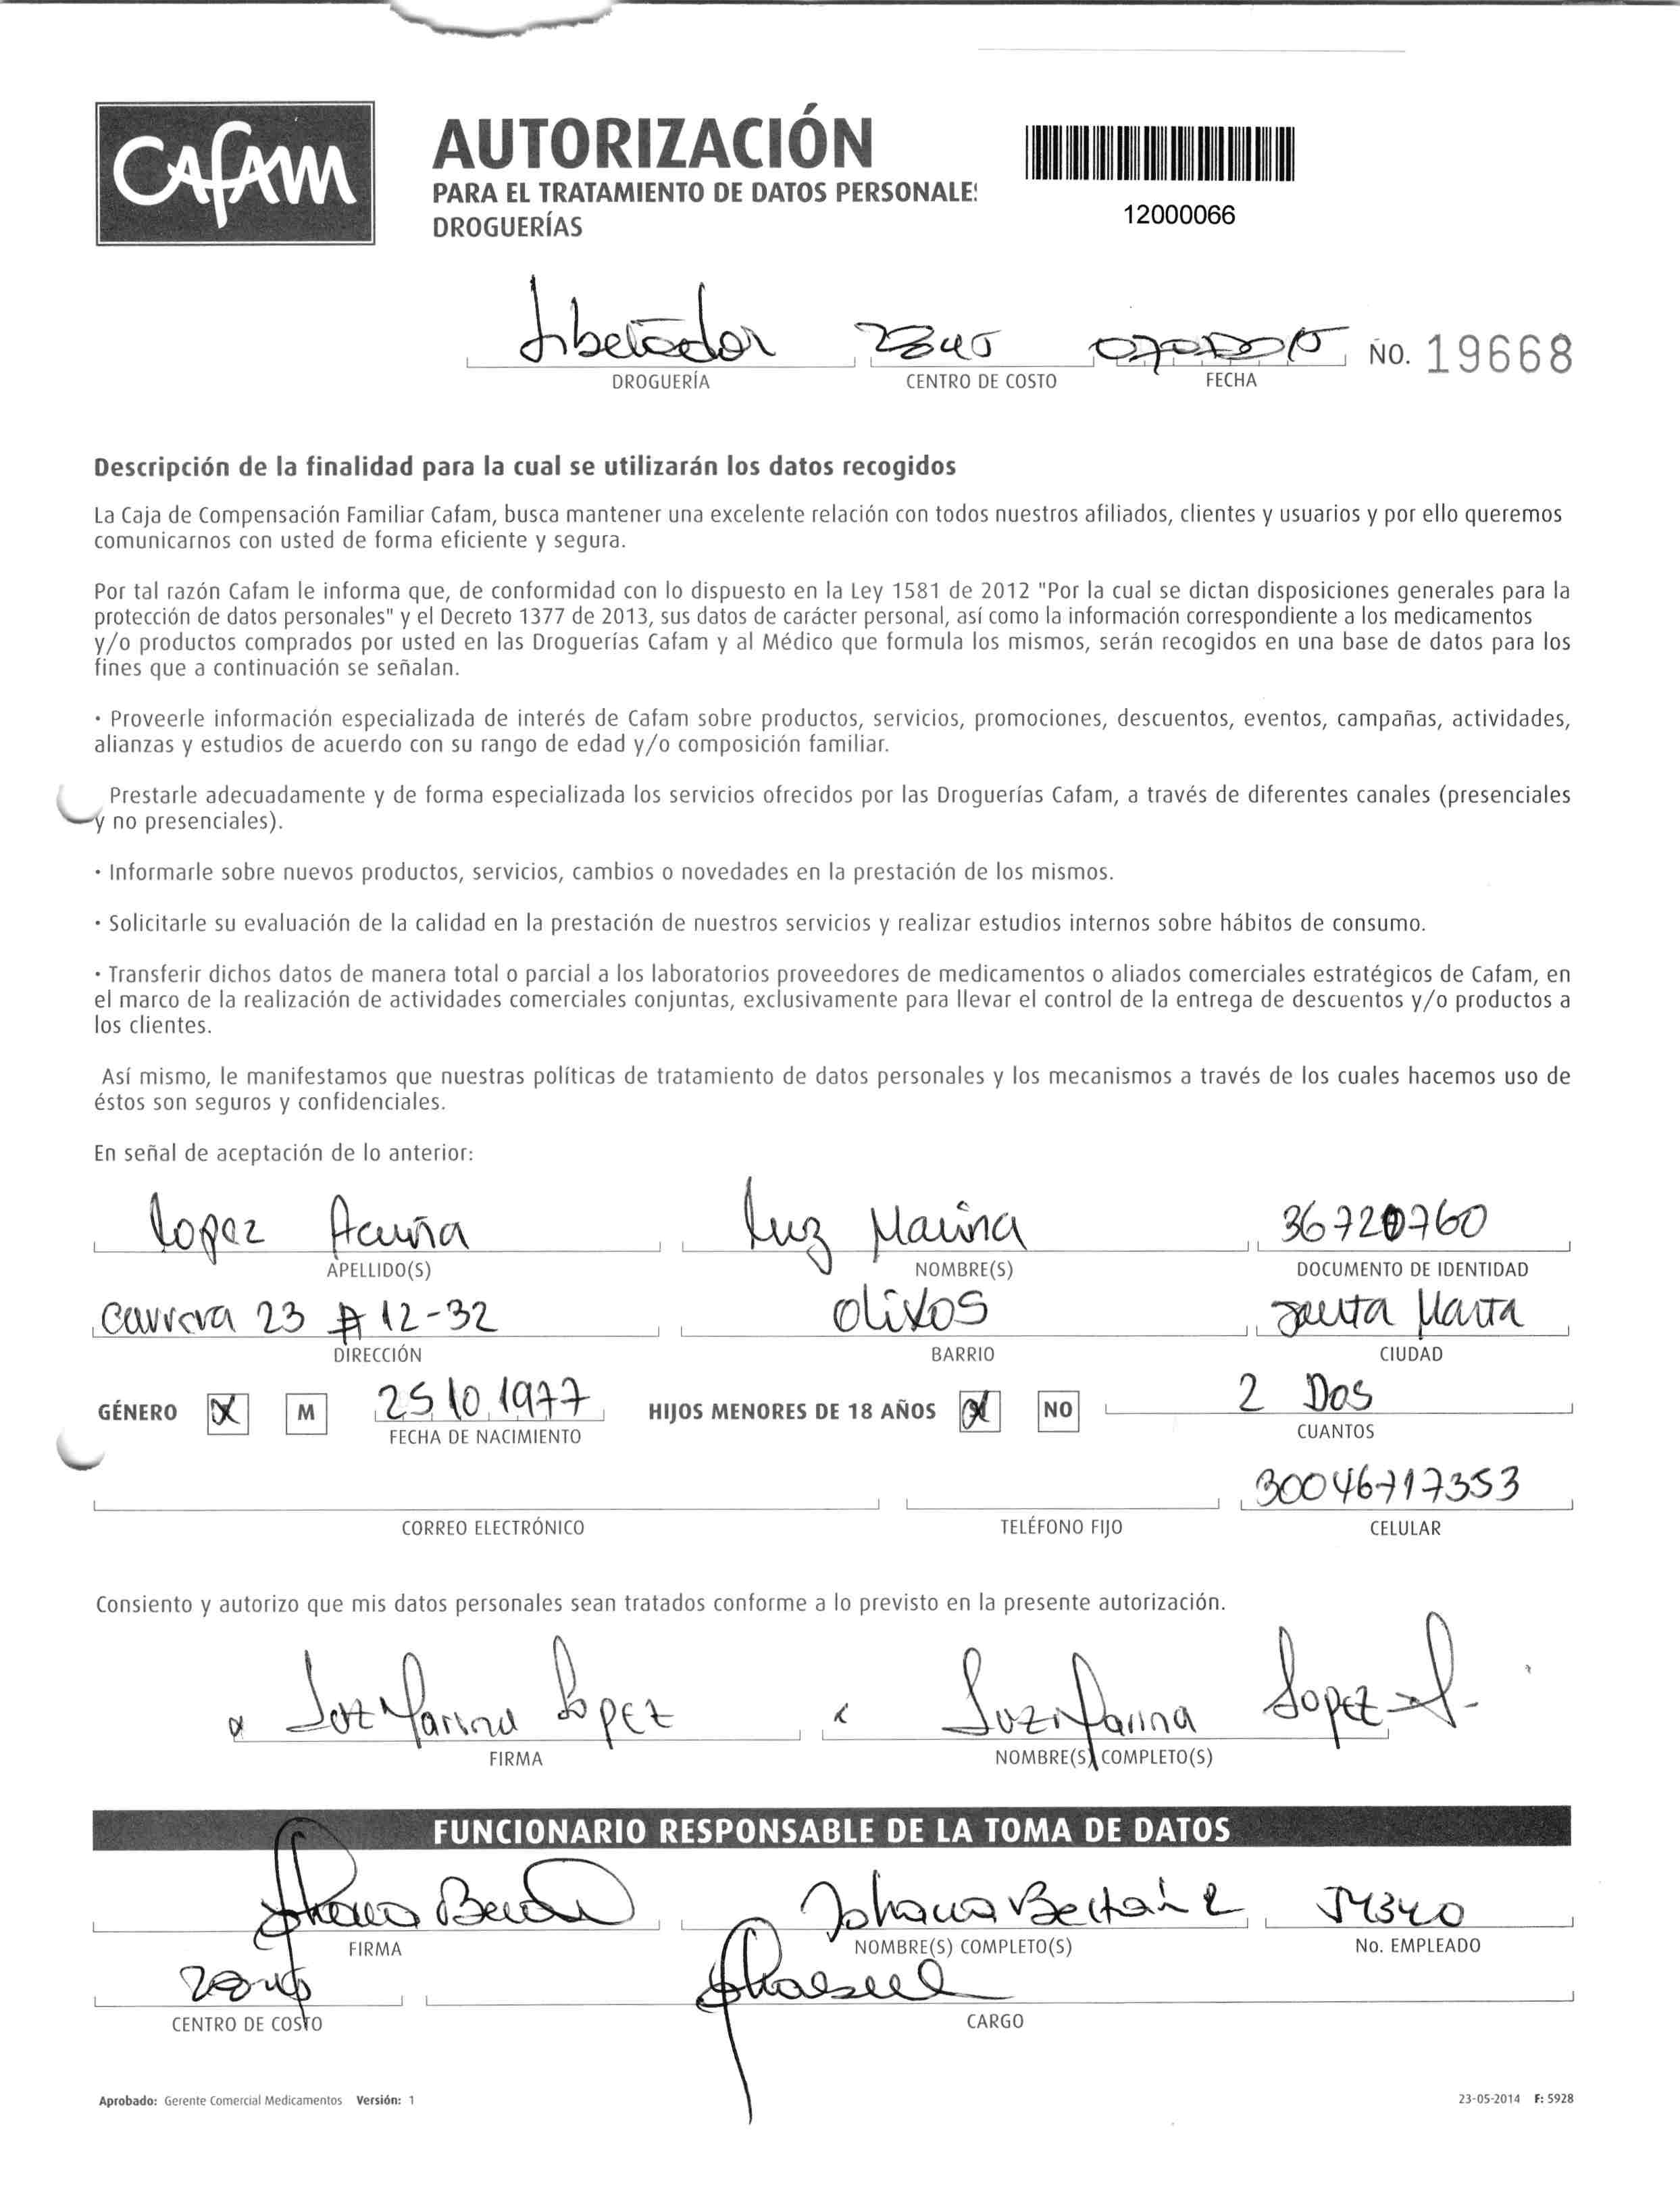 CAFAM
AUTORIZACIÓN
PARA EL TRATAMIENTO DE DATOS PERSONALE
DROGUERÍAS
12000066
Libertador
DROGUERÍA CENTRO DE COSTO FECHA NO. 19668
Descripción de la finalidad para la cual se utilizarán los datos recogidos
La Caja de Compensación Familiar Cafam, busca mantener una excelente relación con todos nuestros afiliados, clientes y usuarios y por ello queremos
comunicarnos con usted de forma eficiente y segura.
Por tal razón Cafam le informa que, de conformidad con lo dispuesto en la Ley 1581 de 2012 "Por la cual se dictan disposiciones generales para la
protección de datos personales" y el Decreto 1377 de 2013, sus datos de carácter personal, así como la información correspondiente a los medicamentos
y/o productos comprados por usted en las Droguerías Cafam y al Médico que formula los mismos, serán recogidos en una base de datos para los
fines que a continuación se señalan.
· Proveerle información especializada de interés de Cafam sobre productos, servicios, promociones, descuentos, eventos, campañas, actividades,
alianzas y estudios de acuerdo con su rango de edad y/o composición familiar.
Prestarle adecuadamente y de forma especializada los servicios ofrecidos por las Droguerías Cafam, a través de diferentes canales (presenciales
y no presenciales).
· Informarle sobre nuevos productos, servicios, cambios o novedades en la prestación de los mismos.
· Solicitarle su evaluación de la calidad en la prestación de nuestros servicios y realizar estudios internos sobre hábitos de consumo.
· Transferir dichos datos de manera total o parcial a los laboratorios proveedores de medicamentos o aliados comerciales estratégicos de Cafam, en
el marco de la realización de actividades comerciales conjuntas, exclusivamente para llevar el control de la entrega de descuentos y/o productos a
los clientes.
Así mismo, le manifestamos que nuestras políticas de tratamiento de datos personales y los mecanismos a través de los cuales hacemos uso de
éstos son seguros y confidenciales.
En señal de aceptación de lo anterior:
Lopez Acuña Luz Marina 36720760
APELLIDO(S) NOMBRE(S) DOCUMENTO DE IDENTIDAD
Carrera 23 # 12-32 Olivos Santa Marta
DIRECCIÓN BARRIO CIUDAD
GÉNERO X M 25 10 1977 HIJOS MENORES DE 18 AÑOS X NO 2 Dos
FECHA DE NACIMIENTO CUANTOS
30046717353
CORREO ELECTRÓNICO TELÉFONO FIJO CELULAR
Consiento y autorizo que mis datos personales sean tratados conforme a lo previsto en la presente autorización.
x Luz Marina Lopez x Luz Marina Lopez A.
FIRMA NOMBRE(S) COMPLETO(S)
FUNCIONARIO RESPONSABLE DE LA TOMA DE DATOS
Johana
FIRMA NOMBRE(S) COMPLETO(S) No. EMPLEADO
CENTRO DE COSTO CARGO
Aprobado: Gerente Comercial Medicamentos Versión: 1 23-05-2014 F: 5928